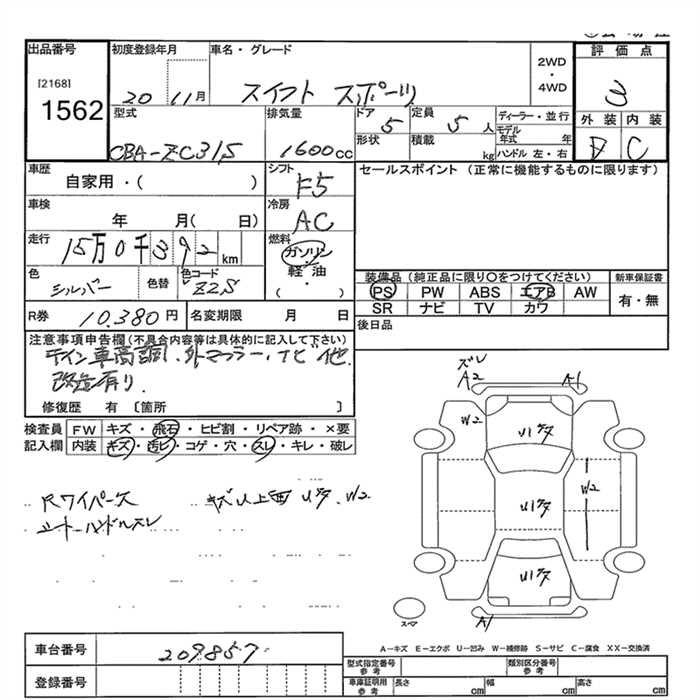 出品番号 初度登録年月 車名・グレード 評価点
[2168]
1562
20 11月 スイフト スポーツ
2WD
・
4WD
3
型式 排気量 ドア 定員 ディーラー・並行 外装 内装
CBA-ZC31S 1600cc 5 5人
形状 積載 kg
モデル年式 年
ハンドル 左・右
D C
車歴 シフト セールスポイント (正常に機能するものに限ります)
自家用・( ) F5
車検 冷房
年 月( 日) AC
走行 燃料
15万0千392km
ガソリン
軽・油
( )
色 シルバー 色替 色コード Z2S
装備品 (純正品に限り○をつけてください) 新車保証書
PS PW ABS エアB AW 有・無
SR ナビ TV カワ
R券 10.380円 名変期限 月 日
後日品
注意事項申告欄(不具合内容等は具体的に記入して下さい)
車高調.外マフラー.ナビ 他
改造有り.
修復歴 有 〔箇所 〕
検査員 FW キズ・飛石・ヒビ割・リペア跡・×要
記入欄 内装 キズ・汚ビ・コゲ・穴・スレ・キレ・破レ
Rワイパー欠
シートハンドルスレ
ズレ
A2 A1
W2
W2
A1
スマ
A-キズ E-エクボ U-凹み W-補修跡 S-サビ C-腐食 XX-交換済
車台番号 209857
登録番号
型式指定番号 参考 類別区分番号 参考
車庫証明用 参考 長さ cm 幅 cm 高さ cm